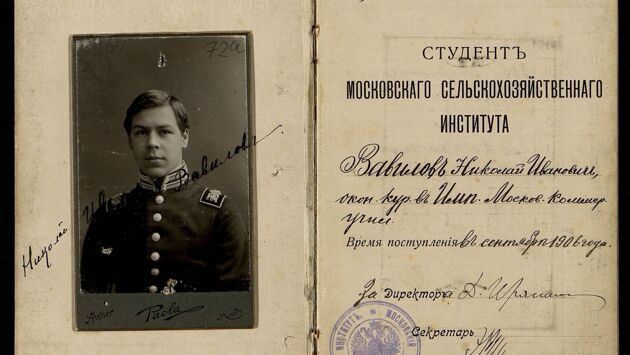 72а
Николай Ив Вавиловъ
Atelier Paola Moscou
СТУДЕНТЪ
МОСКОВСКАГО СЕЛЬСКОХОЗЯЙСТВЕННАГО
ИНСТИТУТА
Вавиловъ Николай Ивановичъ,
окон. кур. въ Имп. Москов. Коммер.
учил.
Время поступленія въ сентябрѣ 1906 года.
За Директора
Секретарь
ИНСТИТУТЪ МОСКОВСКІЙ